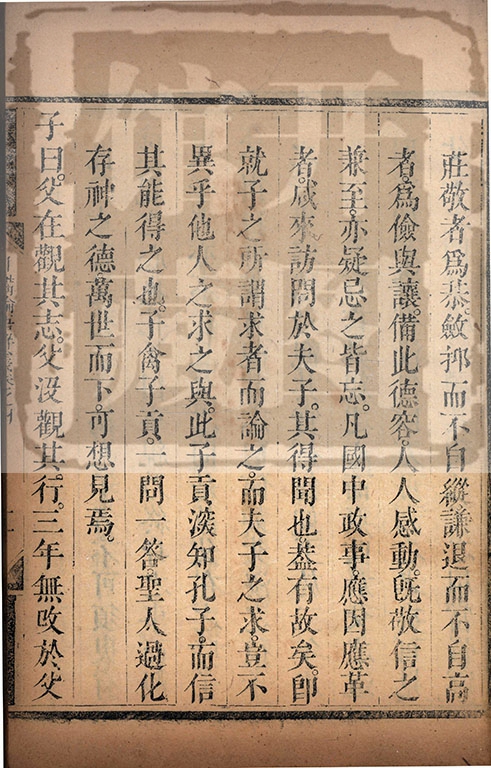 莊敬者爲恭。斂抑而不自縱謙退而不自高
者爲儉與讓。備此德容。人人感動。旣敬信之
兼至。亦疑忌之皆忘。凡國中政事。應因應革
者。咸來訪問於夫子。其得聞也。蓋有故矣。卽
就子之所謂求者而論之。而夫子之求。豈不
異乎他人之求之與。此子貢深知孔子。而信
其能得之也。子禽子貢。一問一答。聖人過化
存神之德。萬世而下。可想見焉。
子曰。父在觀其志。父沒觀其。行。三年無改於。父